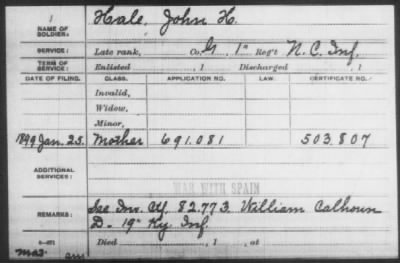 1
NAME OF SOLDIER: Hale, John H.
SERVICE: Late rank, Co. G 1" Reg't N.C. Inf.
TERM OF SERVICE: Enlisted , 1 Discharged , 1
DATE OF FILING. CLASS. APPLICATION NO. LAW. CERTIFICATE NO.
Invalid,
Widow,
Minor,
1899 Jan. 25. Mother 691.081 503.807
ADDITIONAL SERVICES:
WAR WITH SPAIN
REMARKS: See Inv. Ctf. 82.773. William Calhoun
D- 19" Ky. Inf.
Died , 1 , at